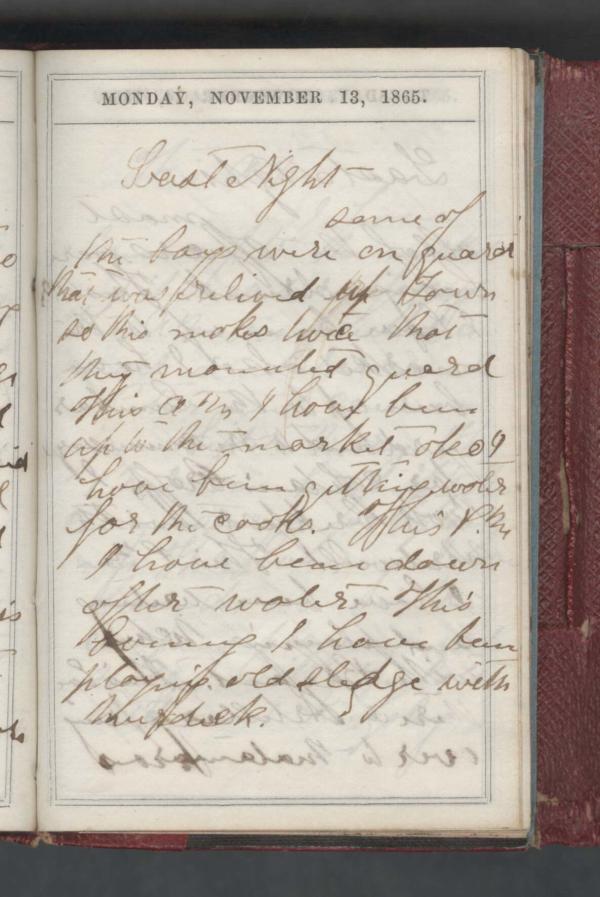 MONDAY, NOVEMBER 13, 1865.
Last Night
some of
the boys were on guard
that was relived up town
so this makes twice that
they mounted guard
This A M I have been
up to the market also I
have been getting water
for the cooks. This P.M
I have been down
after water This
Evening I have been
playing old sledge with